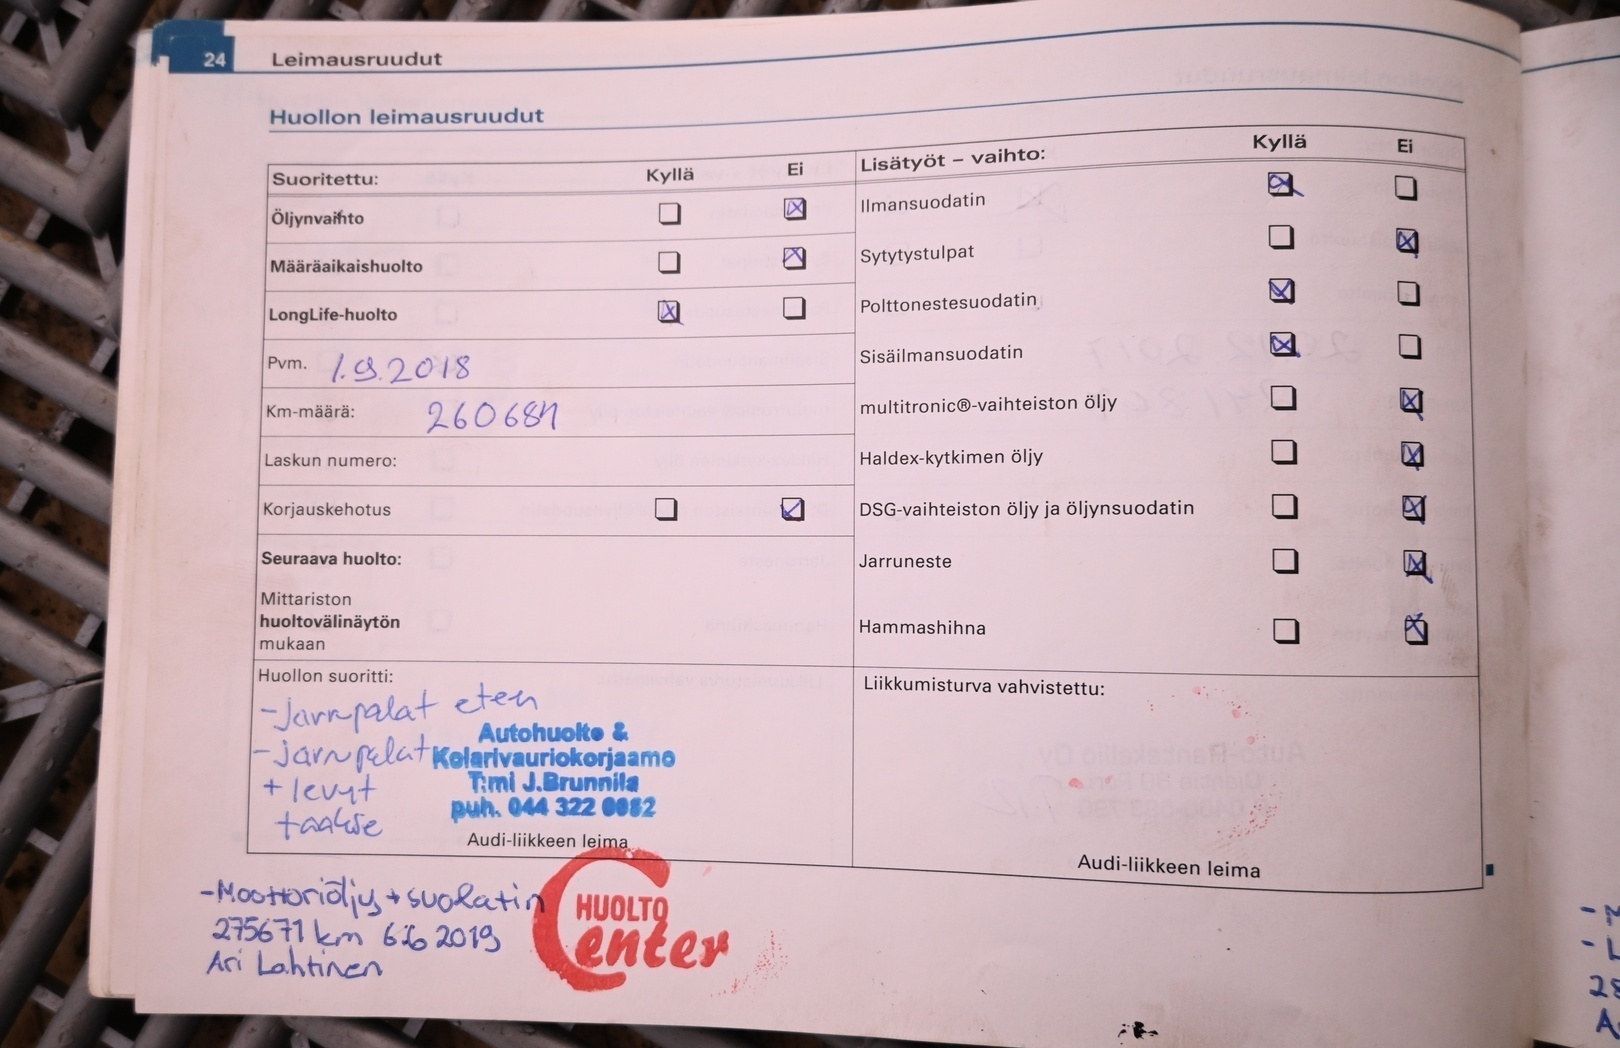 24 Leimausruudut
Huollon leimausruudut
Suoritettu: Kyllä Ei
Öljynvaihto
Määräaikaishuolto
LongLife-huolto
Pvm. 1.9.2018
Km-määrä: 260684
Laskun numero:
Korjauskehotus
Seuraava huolto:
Mittariston
huoltovälinäytön
mukaan
Huollon suoritti:
- jarrupalat eteen
- jarrupalat
+ levyt
taakse
Autohuolto &
Kolarivauriokorjaamo
T:mi J.Brunnila
puh. 044 322 0082
Audi-liikkeen leima
Lisätyöt – vaihto: Kyllä Ei
Ilmansuodatin
Sytytystulpat
Polttonestesuodatin
Sisäilmansuodatin
multitronic®-vaihteiston öljy
Haldex-kytkimen öljy
DSG-vaihteiston öljy ja öljynsuodatin
Jarruneste
Hammashihna
Liikkumisturva vahvistettu:
Audi-liikkeen leima
- Moottoriöljy + suodatin
275671 km 6.6 2019
Ari Lahtinen
HUOLTO
Center